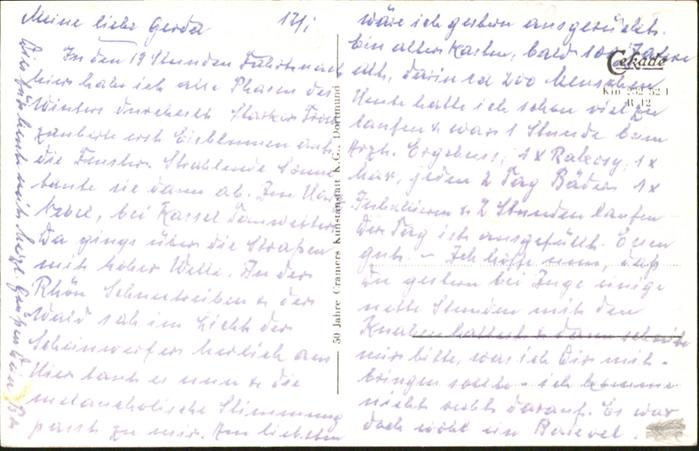 Meine liebe Gerda 17/i
In den 19 Stunden Fahrt nach
hier habe ich alle Phasen des
Winters durcheilt. Starker Frost
zauberte erst Eisblumen an
die Fenster. Strahlende Sonne
taute sie dann ab. Im
bei Kassel Tauwetter.
Da gings über die Straßen
mit hoher Welle. In der
Rhön Schneetreiben & der
Wald sah im Licht der
Scheinwerfer herrlich aus
Hier taut es nun & die
melancholische Stimmung
passt zu mir. Am liebsten
wäre ich gestern ausgerückt.
Ein alter Kasten, bald 100 Jahre
alt, darin ca 200 Menschen.
Heute hatte ich schon viel zu
laufen & war 1 Stunde beim
Arzt. Ergebnis: 1x 1x
jeden 2 Tag Bäder 1x
Inhalieren & 2 Stunden laufen
Der Tag ist ausgefüllt. Essen
gut. – Ich hoffe nun, daß
Du gestern bei Inge einige
nette Stunden mit den
Knaben hattest & dann schreibe
mir bitte, was ich Dir mit-
bringen sollte – ich komme
nicht recht darauf. Es war
doch wohl ein
Dir für heute herzl. Grüße dein
50 Jahre Cramers Kunstanstalt K.G., Dortmund
Cekade
Km 252 52 1
R 12